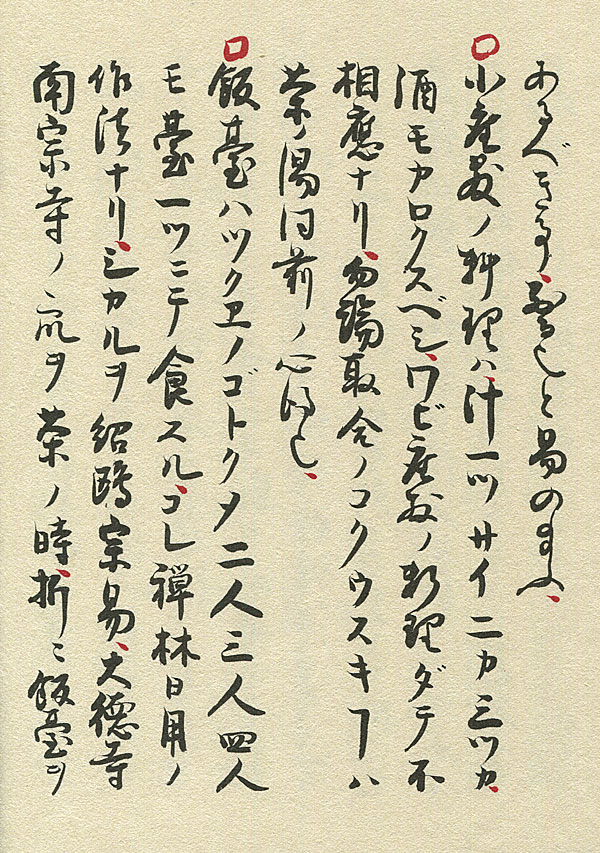 あるべき事、と易の玉ふ、
小座敷ノ料理ハ、汁一ツサイ二カ三ツカ、
酒モカロクスベシ、ワビ座敷ノ料理ダテ不
相應ナリ、勿論取合ノコクウスキヿハ
茶ノ湯同前ノ心得也、
飯臺ハツクエノゴトク〆二人三人四人
モ臺一ツニテ食スル、コレ禅林日用ノ
作法ナリ、シカルヲ紹鷗、宗易、大德寺
南宗寺ノ衆ヲ茶ノ時、折〻飯臺ヲ